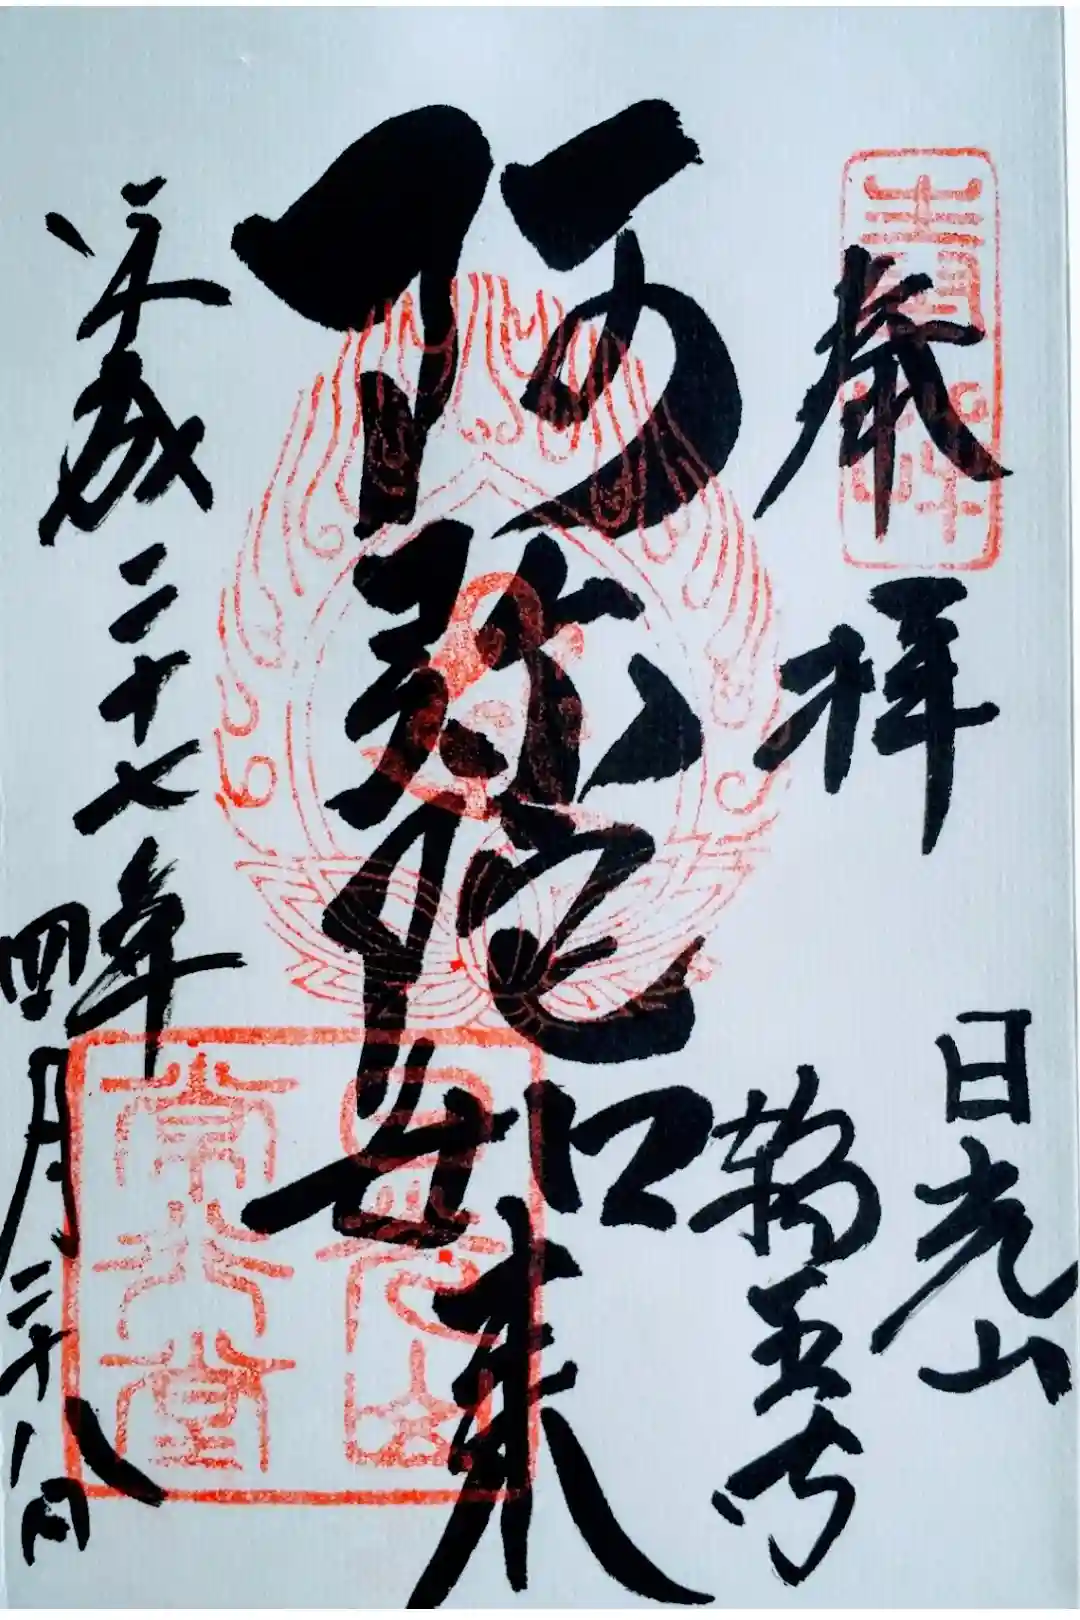 奉拝
日光山
輪王寺
阿弥陀如来
平成二十七年四月二十八日
日光山
常行堂